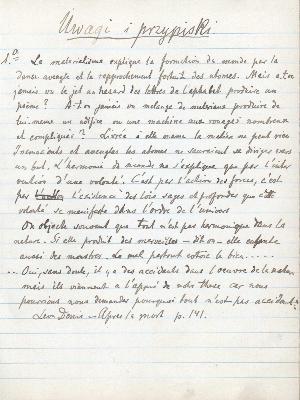 Uwagi i przypiski
1.° Le materialisme explique la formation du monde par la
danse aveugle et le rapprochement fortuit des atomes. Mais a-t-on
jamais vu le jet au hasard des lettres de l'alphabet produire un
poème? A-t-on jamais vu melange de materiaux produire de
lui-meme un edifice ou une machine aux rouages nombreux
et compliqués? Livrée à elle meme la matière ne peut rien
Inconscients et aveugles les atomes ne sauraient se diriger vers
un but. L'harmonie du monde ne s'explique que par l'inter
vention d'une volonté. C'est par l'action des forces, c'est
par l'existence des lois sages et profondes que cette
volonté se manifeste dans l'ordre de l'univers
On objecte souvent que tout n'est pas harmonique dans la
nature. Si elle produit des merveilles - dit-on - elle enfante
aussi des monstres. Le mal partout cotoie le bien.....
.... Oui, sans doute, il y a des accidents dans l'oeuvre de la nature
mais ils viennent a l'appui de notre these car nous
pourrions nous demander pourquoi tout n'est pas accident?
Leon Denis - Apres la mort p. 141.